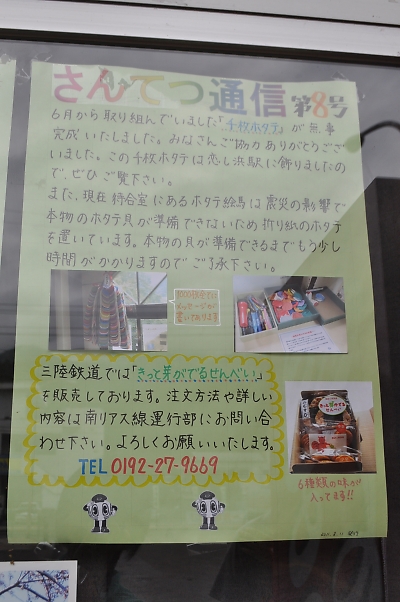 さんてつ通信 第8号
6月から取り組んでいました「千枚ホタテ」が無事
完成いたしました。みなさんご協力ありがとうござ
いました。この千枚ホタテは恋し浜駅に飾りましたの
で、ぜひご覧下さい。
また、現在待合室にあるホタテ絵馬は震災の影響で
本物のホタテ貝が準備できないため折り紙のホタテ
を置いています。本物の貝が準備できるまでもう少し
時間がかかりますのでご了承下さい。
メッセージが
書いてあります
三陸鉄道では「きっと芽がでるせんべい」
を販売しております。注文方法や詳しい
内容は南リアス線運行部にお問い合
わせ下さい。よろしくお願いいたします。
TEL 0192-27-9669
6種類の味が
入ってます!!